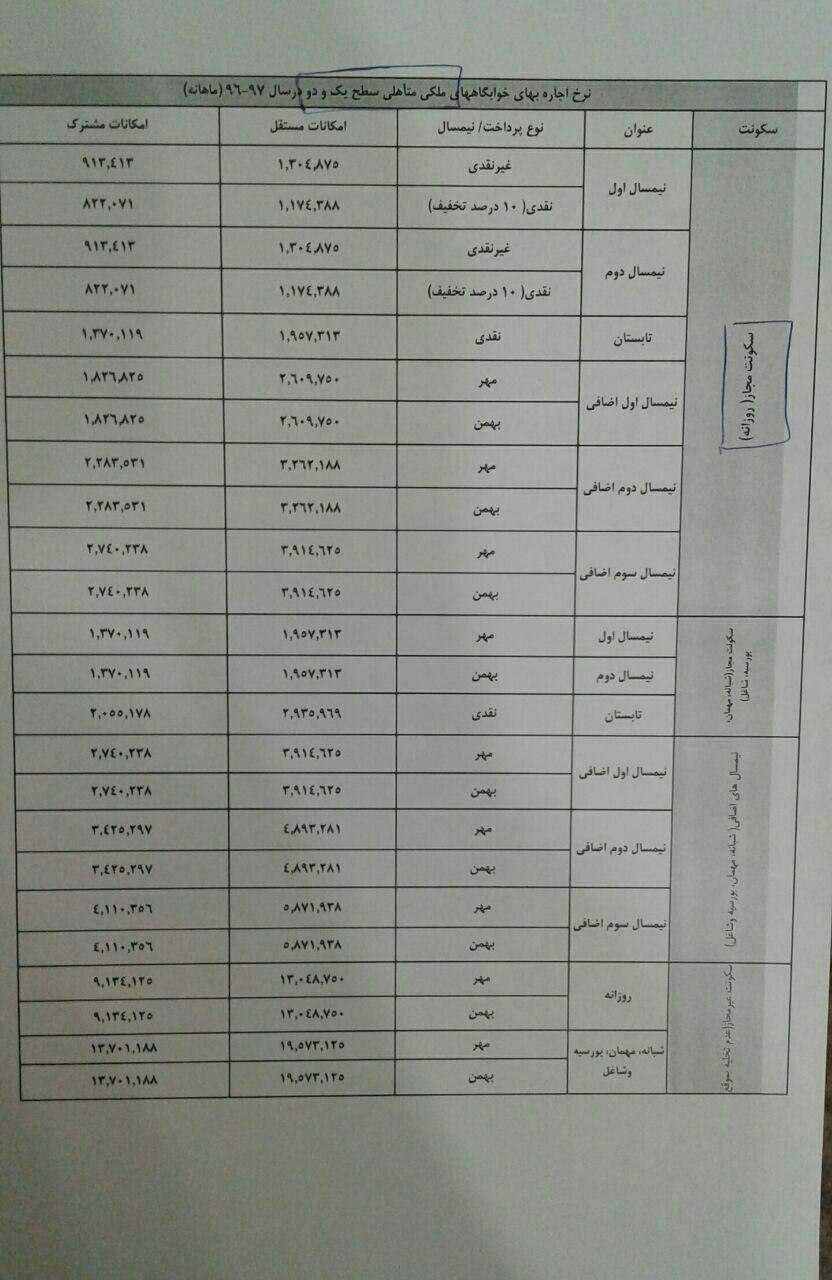 نرخ اجاره بهای خوابگاههای ملکی متأهلی سطح یک و دو درسال ۹۷-۹۶ (ماهانه)
سکونت | عنوان | نوع پرداخت/ نیمسال | امکانات مستقل | امکانات مشترک
سکونت مجاز( روزانه)
نیمسال اول | غیرنقدی | ۱,۳۰٤,۸۷٥ | ۹۱۳,٤۱۳
نقدی( ۱۰ درصد تخفیف) | ۱,۱۷٤,۳۸۸ | ۸۲۲,۰۷۱
نیمسال دوم | غیرنقدی | ۱,۳۰٤,۸۷٥ | ۹۱۳,٤۱۳
نقدی( ۱۰ درصد تخفیف) | ۱,۱۷٤,۳۸۸ | ۸۲۲,۰۷۱
تابستان | نقدی | ۱,۹٥۷,۳۱۳ | ۱,۳۷۰,۱۱۹
نیمسال اول اضافی | مهر | ۲,٦۰۹,۷٥۰ | ۱,۸۲٦,۸۲٥
بهمن | ۲,٦۰۹,۷٥۰ | ۱,۸۲٦,۸۲٥
نیمسال دوم اضافی | مهر | ۳,۲٦۲,۱۸۸ | ۲,۲۸۳,٥۳۱
بهمن | ۳,۲٦۲,۱۸۸ | ۲,۲۸۳,٥۳۱
نیمسال سوم اضافی | مهر | ۳,۹۱٤,٦۲٥ | ۲,۷٤۰,۲۳۸
بهمن | ۳,۹۱٤,٦۲٥ | ۲,۷٤۰,۲۳۸
سکونت مجاز(شبانه، مهمان،
بورسیه، شاغل)
نیمسال اول | مهر | ۱,۹٥۷,۳۱۳ | ۱,۳۷۰,۱۱۹
نیمسال دوم | بهمن | ۱,۹٥۷,۳۱۳ | ۱,۳۷۰,۱۱۹
تابستان | نقدی | ۲,۹۳٥,۹٦۹ | ۲,۰٥٥,۱۷۸
نیمسال های اضافی( شبانه، مهمان، بورسیه وشاغل)
نیمسال اول اضافی | مهر | ۳,۹۱٤,٦۲٥ | ۲,۷٤۰,۲۳۸
بهمن | ۳,۹۱٤,٦۲٥ | ۲,۷٤۰,۲۳۸
نیمسال دوم اضافی | مهر | ٤,۸۹۳,۲۸۱ | ۳,٤۲٥,۲۹۷
بهمن | ٤,۸۹۳,۲۸۱ | ۳,٤۲٥,۲۹۷
نیمسال سوم اضافی | مهر | ٥,۸۷۱,۹۳۸ | ٤,۱۱۰,۳٥٦
بهمن | ٥,۸۷۱,۹۳۸ | ٤,۱۱۰,۳٥٦
سکونت غیرمجاز(عدم تخلیه بموقع
روزانه | مهر | ۱۳,۰٤۸,۷٥۰ | ۹,۱۳٤,۱۲٥
بهمن | ۱۳,۰٤۸,۷٥۰ | ۹,۱۳٤,۱۲٥
شبانه، مهمان، بورسیه | مهر | ۱۹,٥۷۳,۱۲٥ | ۱۳,۷۰۱,۱۸۸
وشاغل | بهمن | ۱۹,٥۷۳,۱۲٥ | ۱۳,۷۰۱,۱۸۸